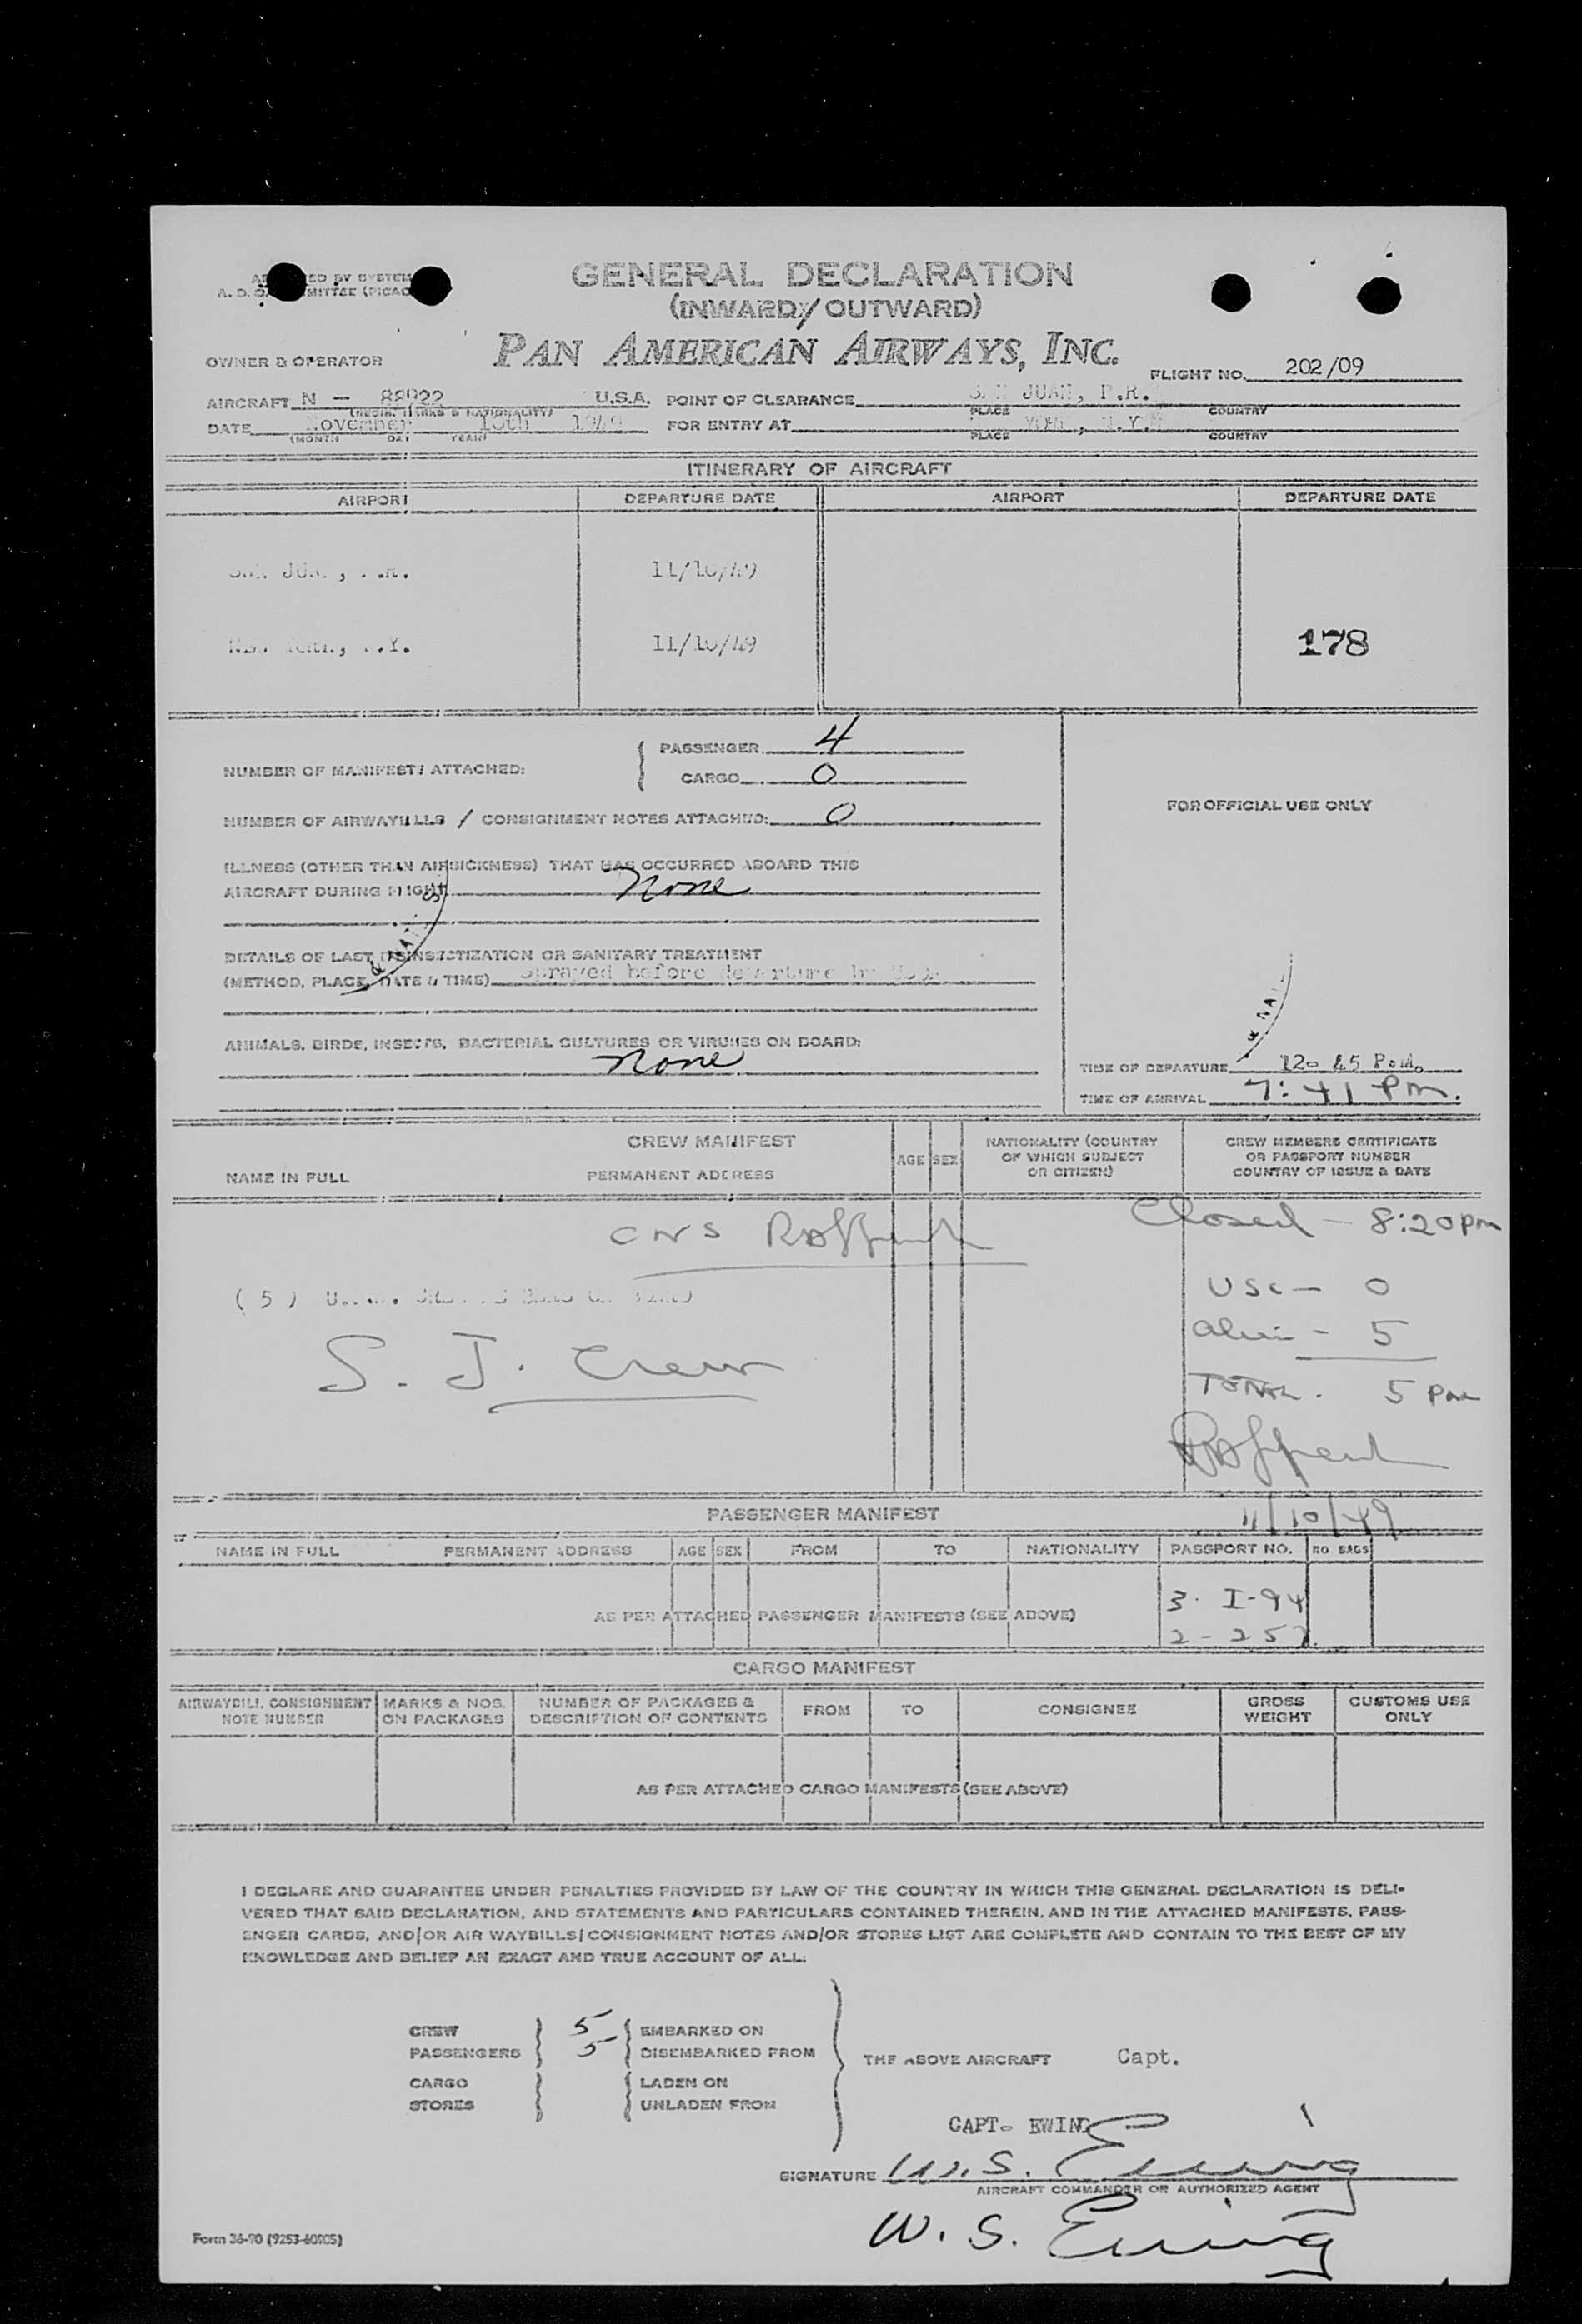 GENERAL DECLARATION
(INWARD/OUTWARD)
PAN AMERICAN AIRWAYS, INC.
OWNER & OPERATOR
FLIGHT NO. 202/09
AIRCRAFT N - U.S.A. POINT OF CLEARANCE SAN JUAN, P.R.
(REGIS. MARKS & NATIONALITY) PLACE COUNTRY
DATE November 10th 1949 FOR ENTRY AT YORK, N.Y.
(MONTH DAY YEAR) PLACE COUNTRY
ITINERARY OF AIRCRAFT
AIRPORT DEPARTURE DATE AIRPORT DEPARTURE DATE
SAN JUAN, P.R. 11/10/49
NEW YORK, N.Y. 11/10/49 178
NUMBER OF MANIFESTS ATTACHED: PASSENGER 4
CARGO 0
NUMBER OF AIRWAYBILLS / CONSIGNMENT NOTES ATTACHED: 0
FOR OFFICIAL USE ONLY
ILLNESS (OTHER THAN AIRSICKNESS) THAT HAS OCCURRED ABOARD THIS
AIRCRAFT DURING FLIGHT None
DETAILS OF LAST DISINSECTIZATION OR SANITARY TREATMENT
(METHOD, PLACE, DATE & TIME) Sprayed before departure by
ANIMALS, BIRDS, INSECTS, BACTERIAL CULTURES OR VIRUSES ON BOARD:
None
TIME OF DEPARTURE 12- 45 P.M.
TIME OF ARRIVAL 7:41 Pm.
CREW MANIFEST
NAME IN FULL PERMANENT ADDRESS AGE SEX NATIONALITY (COUNTRY OF WHICH SUBJECT OR CITIZEN) CREW MEMBERS CERTIFICATE OR PASSPORT NUMBER COUNTRY OF ISSUE & DATE
Closed - 8:20 pm
( 5 )
USC - 0
S. J. Crew
alien - 5
TOTAL. 5
11/10/49
PASSENGER MANIFEST
NAME IN FULL PERMANENT ADDRESS AGE SEX FROM TO NATIONALITY PASSPORT NO. NO. BAGS
3 - I-94
AS PER ATTACHED PASSENGER MANIFESTS (SEE ABOVE)
2 - 257
CARGO MANIFEST
AIRWAYBILL CONSIGNMENT NOTE NUMBER MARKS & NOS. ON PACKAGES NUMBER OF PACKAGES & DESCRIPTION OF CONTENTS FROM TO CONSIGNEE GROSS WEIGHT CUSTOMS USE ONLY
AS PER ATTACHED CARGO MANIFESTS (SEE ABOVE)
I DECLARE AND GUARANTEE UNDER PENALTIES PROVIDED BY LAW OF THE COUNTRY IN WHICH THIS GENERAL DECLARATION IS DELI-
VERED THAT SAID DECLARATION, AND STATEMENTS AND PARTICULARS CONTAINED THEREIN, AND IN THE ATTACHED MANIFESTS, PASS-
ENGER CARDS, AND/OR AIR WAYBILLS/CONSIGNMENT NOTES AND/OR STORES LIST ARE COMPLETE AND CONTAIN TO THE BEST OF MY
KNOWLEDGE AND BELIEF AN EXACT AND TRUE ACCOUNT OF ALL:
CREW 5 EMBARKED ON
PASSENGERS 5 DISEMBARKED FROM
THE ABOVE AIRCRAFT Capt.
CARGO LADEN ON
STORES UNLADEN FROM
CAPT- EWING
SIGNATURE W. S. Ewing
AIRCRAFT COMMANDER OR AUTHORIZED AGENT
W. S. Ewing
Form 36-90